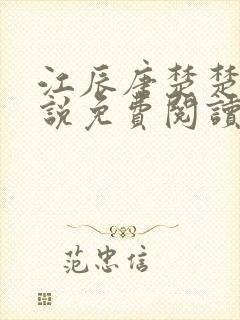 江辰唐楚楚
說免費閱讀
范忠信